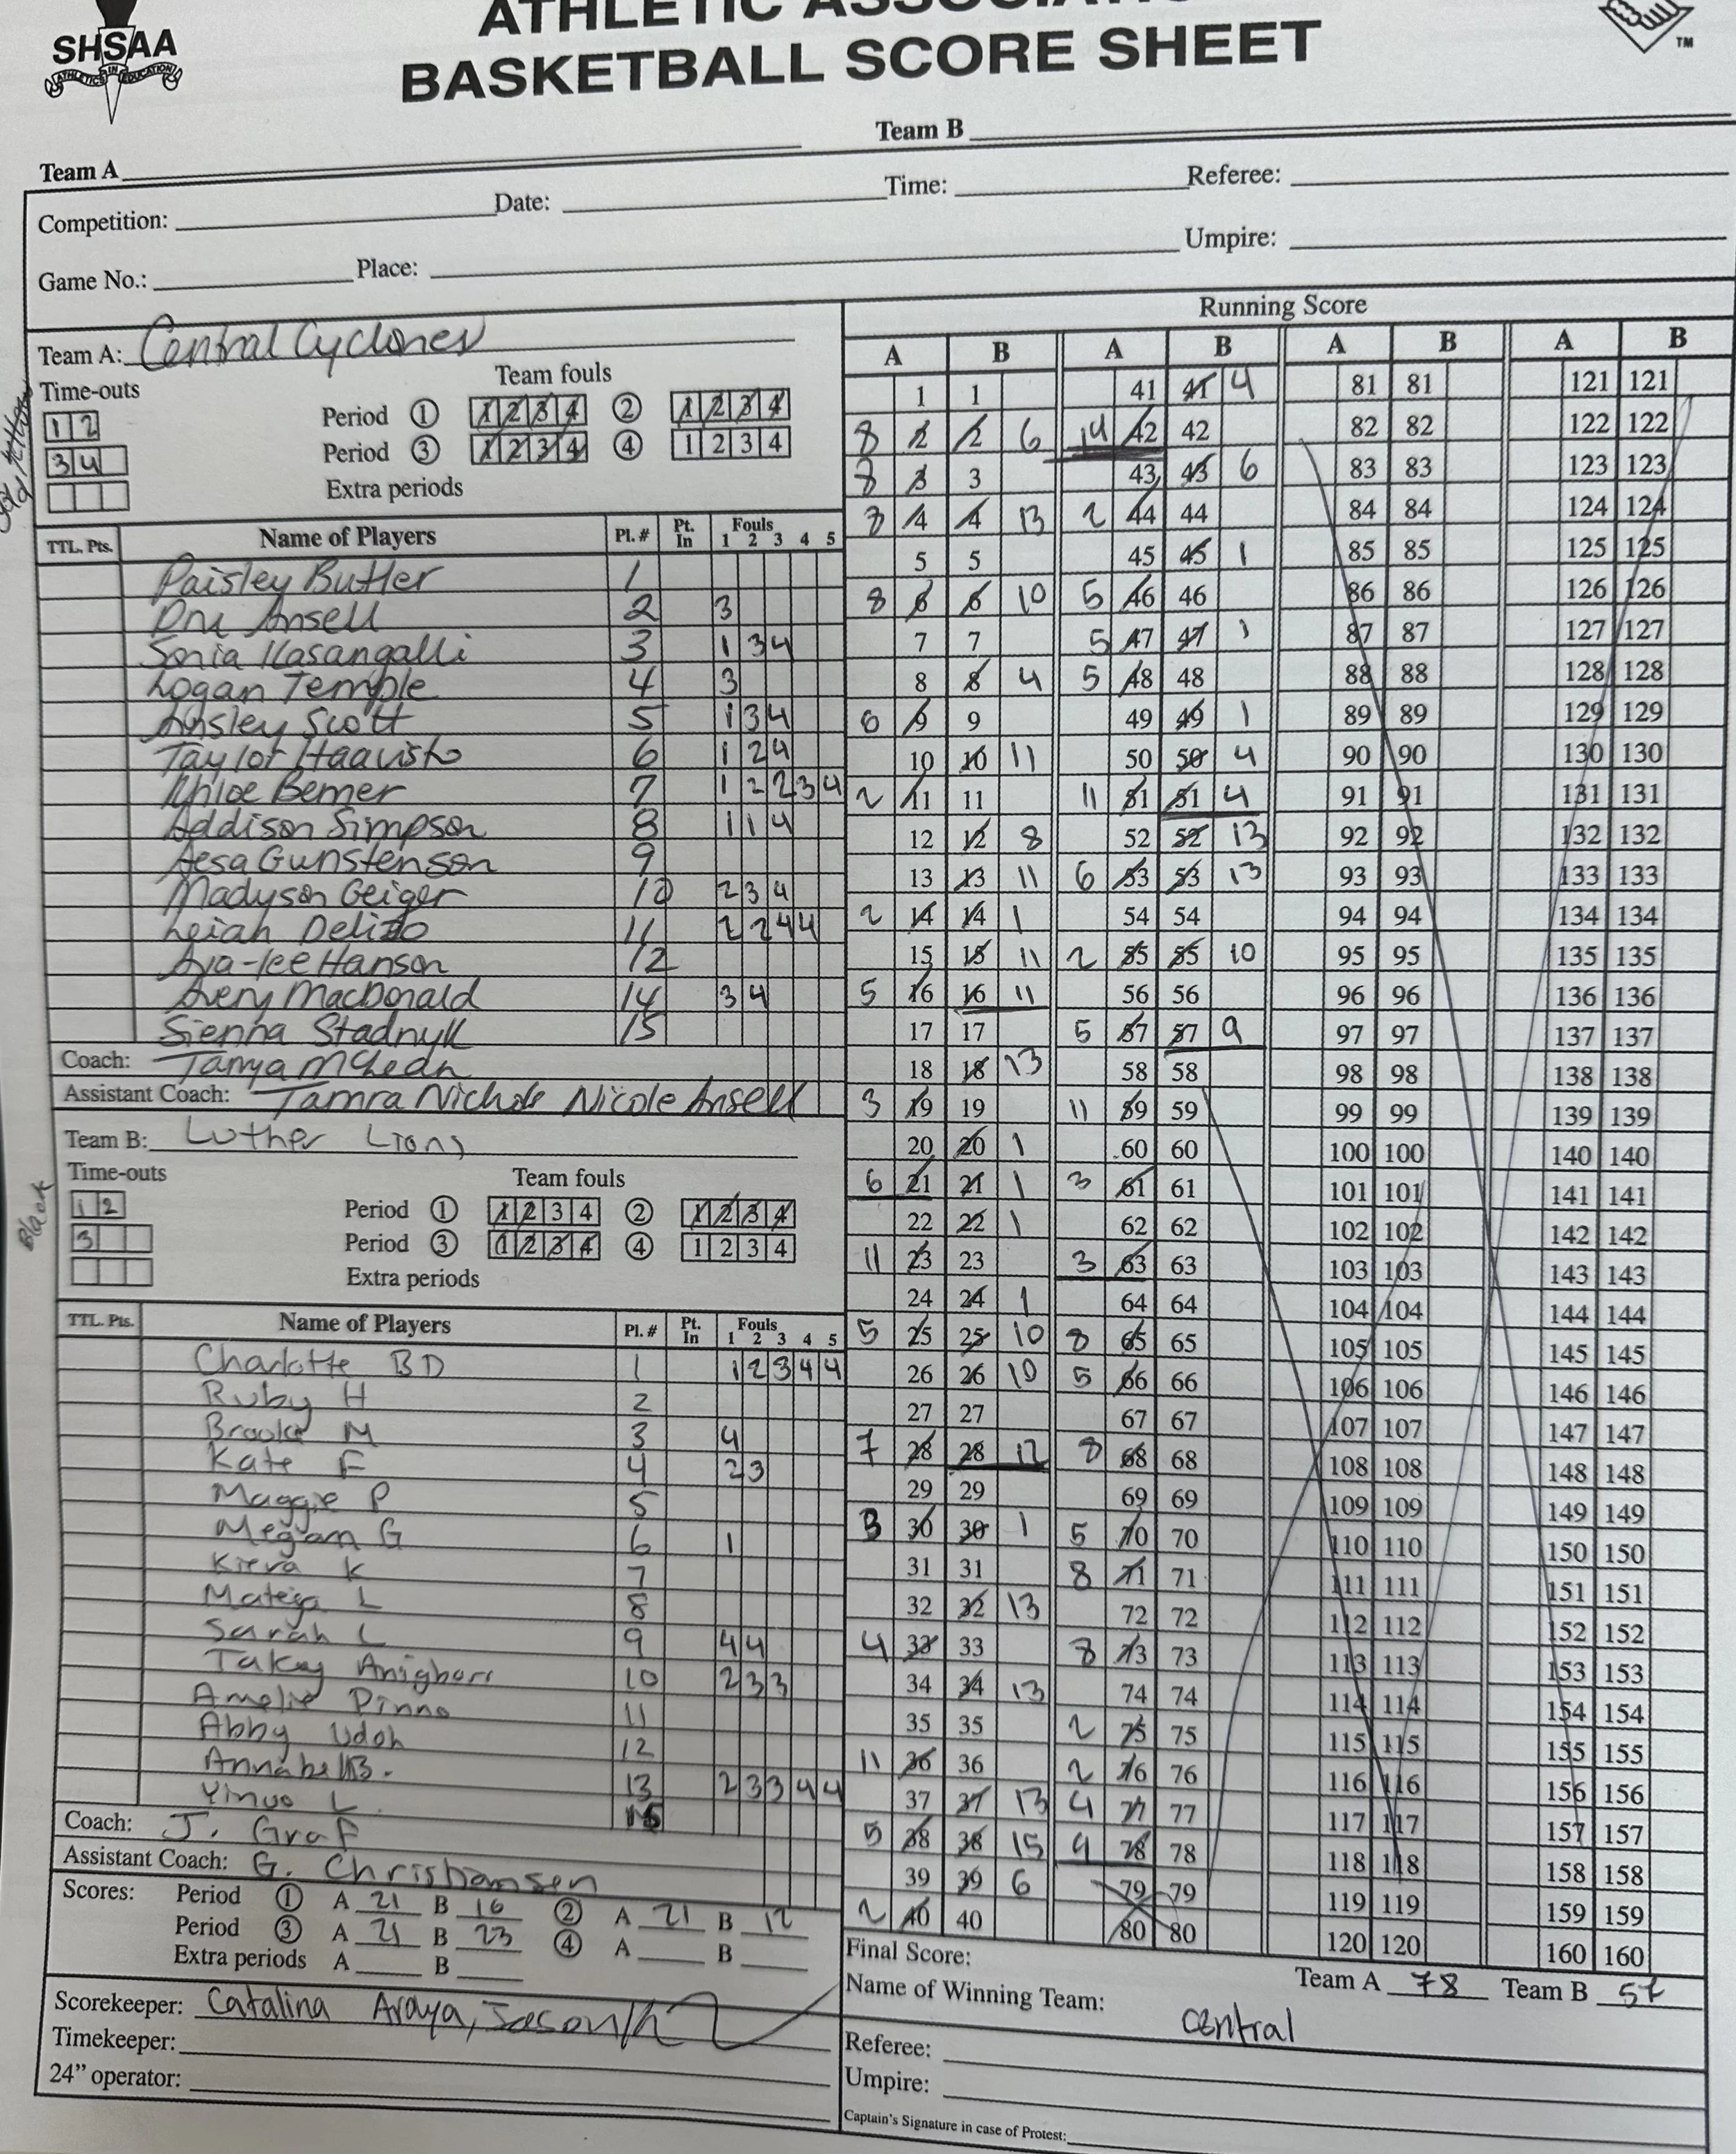 SHSAA
ATHLETICS IN EDUCATION
BASKETBALL SCORE SHEET
TM
Team A
Team B
Competition: Date: Time: Referee:
Game No.: Place: Umpire:
Team A: Central Cyclones
Time-outs
1 2
3 4
Team fouls
Period 1 1 2 3 4 2 1 2 3 4
Period 3 1 2 3 4 4 1 2 3 4
Extra periods
TTL. Pts. Name of Players Pl. # Pt. In Fouls 1 2 3 4 5
Paisley Butler 1
Dru Ansell 2 3
Sonia Kasangalli 3 1 3 4
Logan Temple 4 3
Ainsley Scott 5 1 3 4
Taylor Haavisto 6 1 2 4
Khloe Bemer 7 1 2 2 3 4
Addison Simpson 8 1 1 4
Aesa Gunstenson 9
Madyson Geiger 10 2 3 4
Leiah Delizo 11 2 2 4 4
Ava-lee Hanson 12
Avery MacDonald 14 3 4
Sienna Stadnyk 15
Coach: Tanya McLean
Assistant Coach: Tamra Nichols Nicole Ansell
Black
Team B: Luther Lions
Time-outs
1 2
3
Team fouls
Period 1 1 2 3 4 2 1 2 3 4
Period 3 1 2 3 4 4 1 2 3 4
Extra periods
TTL. Pts. Name of Players Pl. # Pt. In Fouls 1 2 3 4 5
Charlotte BD 1 1 2 3 4 4
Ruby H 2
Brooke M 3 4
Kate F 4 2 3
Maggie P 5
Megan G 6 1
Kieva K 7
Mateja L 8
Sarah L 9 4 4
Takey 10 2 3 3
Amelie Pinno 11
Abby Udoh 12
Annabel B. 13 2 3 3 4 4
Yinuo L 15
Coach: J. Graf
Assistant Coach: G. Christiansen
Scores: Period 1 A 21 B 16 2 A 21 B 12
Period 3 A 21 B 23 4 A B
Extra periods A B
Scorekeeper: Catalina Araya, Jason
Timekeeper:
24” operator:
Running Score
A B A B A B A B
1 1 41 41 4 81 81 121 121
8 2 2 6 14 42 42 82 82 122 122
8 3 3 43 43 6 83 83 123 123
8 4 4 13 2 44 44 84 84 124 124
5 5 45 45 1 85 85 125 125
8 6 6 10 5 46 46 86 86 126 126
7 7 5 47 47 1 87 87 127 127
8 8 4 5 48 48 88 88 128 128
6 9 9 49 49 1 89 89 129 129
10 10 11 50 50 4 90 90 130 130
2 11 11 11 51 51 4 91 91 131 131
12 12 8 52 52 13 92 92 132 132
13 13 11 6 53 53 13 93 93 133 133
2 14 14 1 54 54 94 94 134 134
15 15 11 2 55 55 10 95 95 135 135
5 16 16 11 56 56 96 96 136 136
17 17 5 57 57 9 97 97 137 137
18 18 13 58 58 98 98 138 138
3 19 19 11 59 59 99 99 139 139
20 20 1 60 60 100 100 140 140
6 21 21 1 3 61 61 101 101 141 141
22 22 1 62 62 102 102 142 142
11 23 23 3 63 63 103 103 143 143
24 24 1 64 64 104 104 144 144
5 25 25 10 8 65 65 105 105 145 145
26 26 10 5 66 66 106 106 146 146
27 27 67 67 107 107 147 147
7 28 28 12 8 68 68 108 108 148 148
29 29 69 69 109 109 149 149
3 30 30 1 5 70 70 110 110 150 150
31 31 8 71 71 111 111 151 151
32 32 13 72 72 112 112 152 152
4 33 33 8 73 73 113 113 153 153
34 34 13 74 74 114 114 154 154
35 35 2 75 75 115 115 155 155
11 36 36 2 76 76 116 116 156 156
37 37 13 4 77 77 117 117 157 157
5 38 38 15 4 78 78 118 118 158 158
39 39 6 79 79 119 119 159 159
2 40 40 80 80 120 120 160 160
Final Score: Team A 78 Team B 57
Name of Winning Team: central
Referee:
Umpire:
Captain's Signature in case of Protest: